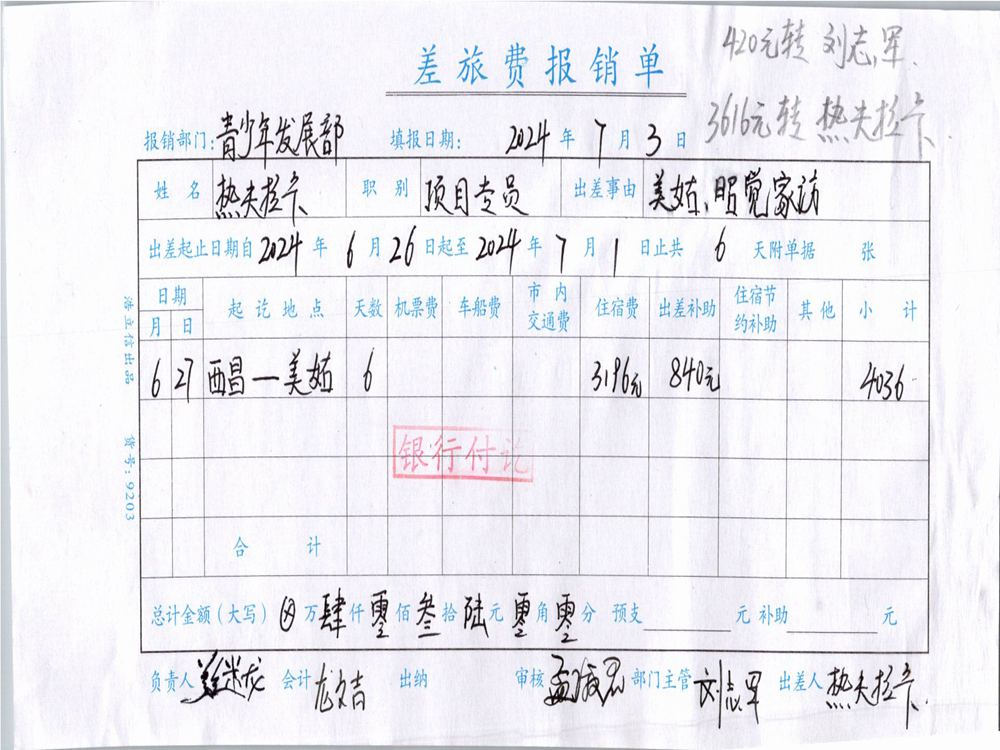 420元转 刘志军.
差旅费报销单
3616元转 热夫拉卡.
报销部门: 青少年发展部 填报日期: 2024 年 7 月 3 日
姓名 热夫拉卡 职别 项目专员 出差事由 美姑、昭觉家访
出差起止日期自 2024 年 6 月 26 日起至 2024 年 7 月 1 日止共 6 天附单据 张
日期 起讫地点 天数 机票费 车船费 市内交通费 住宿费 出差补助 住宿节约补助 其他 小计
月 日
6 27 西昌—美姑 6 3196元 840元 4036
银行付讫
合计
总计金额(大写) ⊗ 万 肆 仟 零 佰 叁 拾 陆 元 零 角 零 分 预支 元 补助 元
负责人 会计 出纳 审核 部门主管 刘志军 出差人 热夫拉卡
浩立信出品 货号: 9203